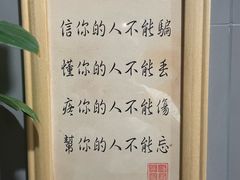 信你的人不能騙
懂你的人不能丟
疼你的人不能傷
幫你的人不能忘